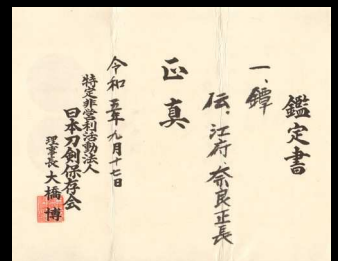 鑑定書
一、鐔
伝、江府・奈良正長
正真
令和五年九月十七日
特定非営利活動法人
日本刀剣保存会
理事長 大橋 博